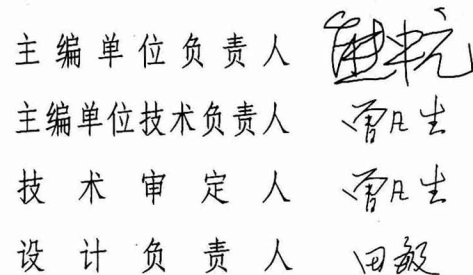 主编单位负责人
主编单位技术负责人 曾凡生
技术审定人 曾凡生
设计负责人 田敏